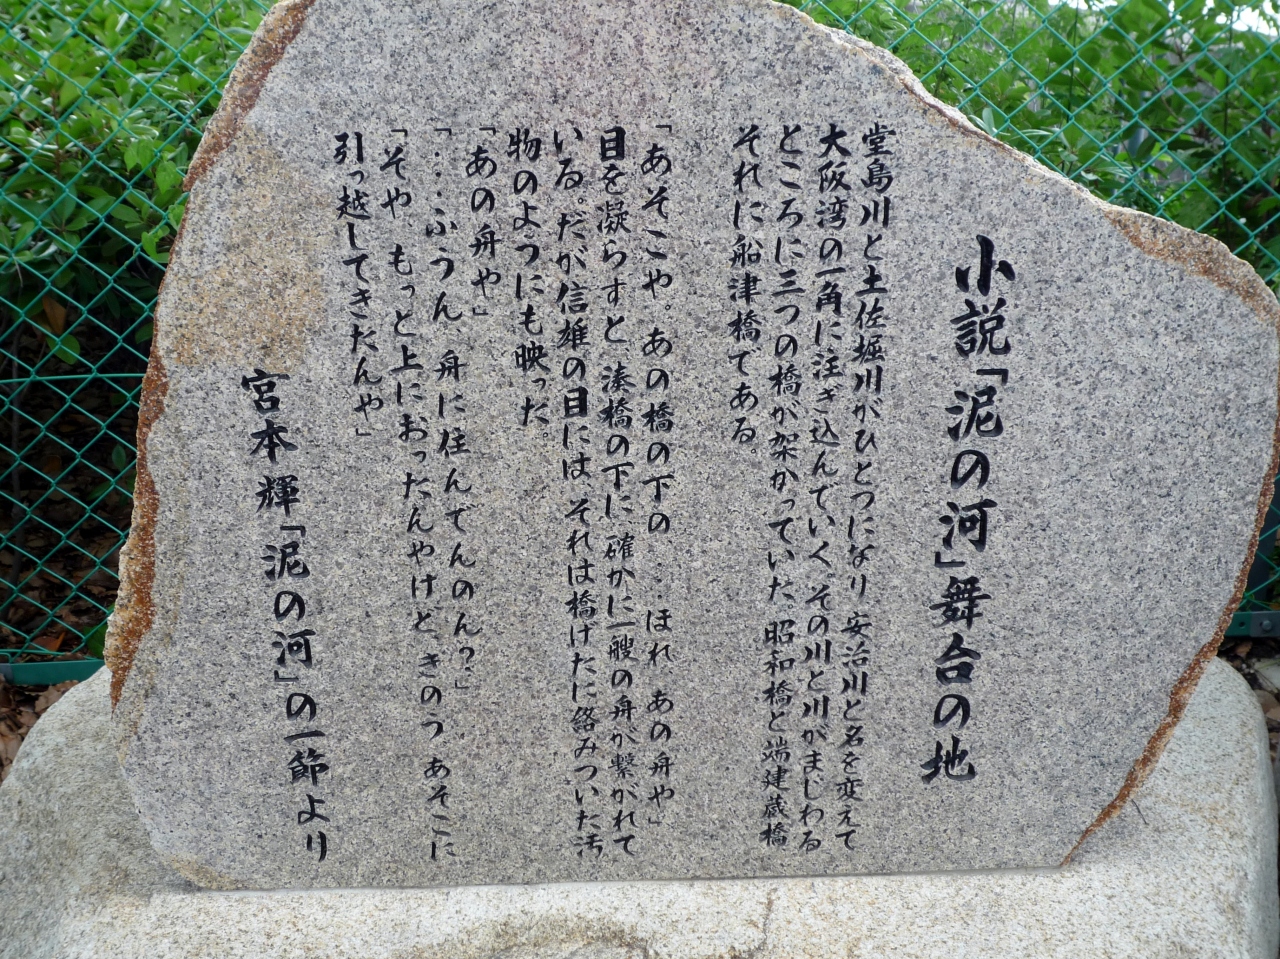 小説「泥の河」舞台の地
堂島川と土佐堀川がひとつになり、安治川と名を変えて
大阪湾の一角に注ぎ込んでいく。その川と川がまじわる
ところに三つの橋が架かっていた。昭和橋と端建蔵橋、
それに船津橋である。
「あそこや。あの橋の下の……ほれ、あの舟や」
目を凝らすと、湊橋の下に、確かに一艘の舟が繋がれて
いる。だが信雄の目には、それは橋げたに絡みついた汚
物のようにも映った。
「あの舟や」
「……ふうん、舟に住んでんのん?」
「そや、もっと上におったんやけど、きのう、あそこに
引っ越してきたんや」
宮本輝「泥の河」の一節より